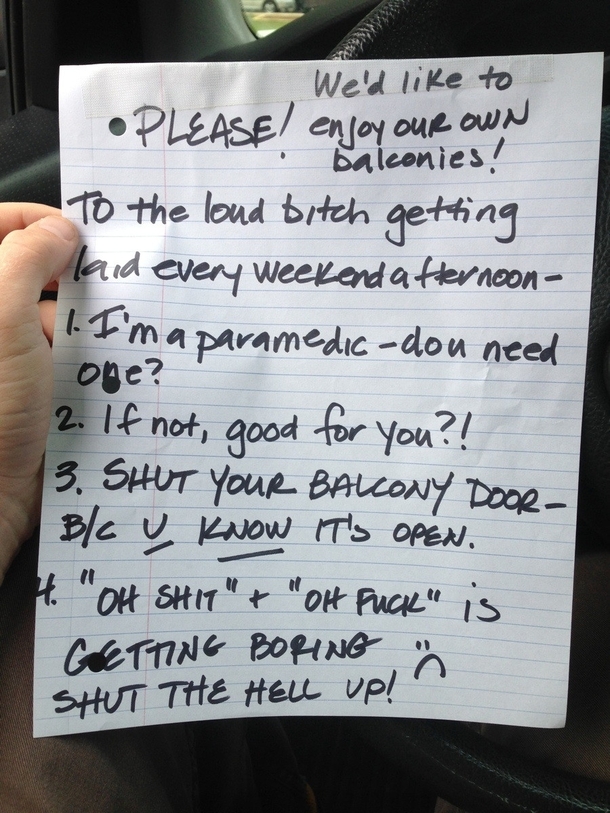 We'd like to
• PLEASE! enjoy our own
balconies!
To the loud bitch getting
laid every weekend afternoon-
1. I'm a paramedic - do u need
one?
2. If not, good for you?!
3. SHUT YOUR BALCONY DOOR-
B/C U KNOW IT'S OPEN.
4. "OH SHIT" + "OH FUCK" is
GETTING BORING :(
SHUT THE HELL UP!